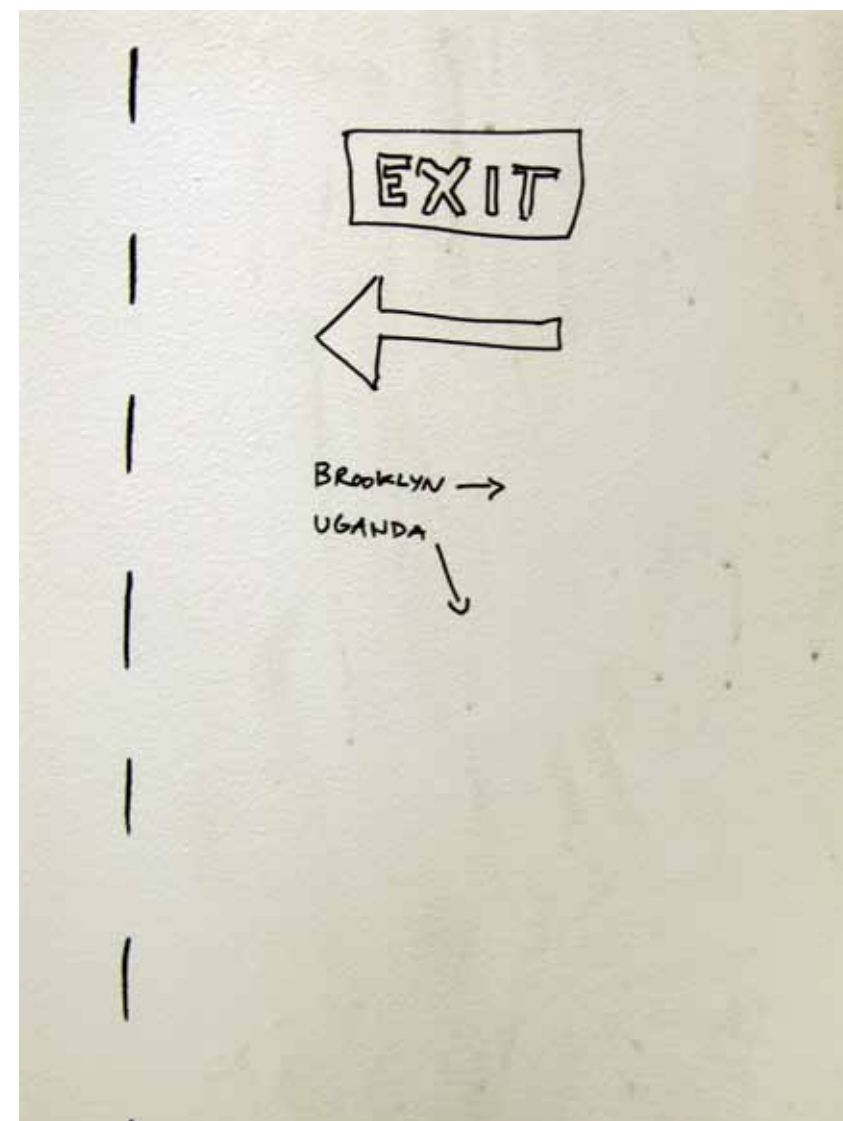 EXIT
BROOKLYN →
UGANDA